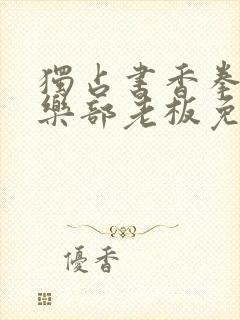 獨占書香拳
樂部老板免
優香